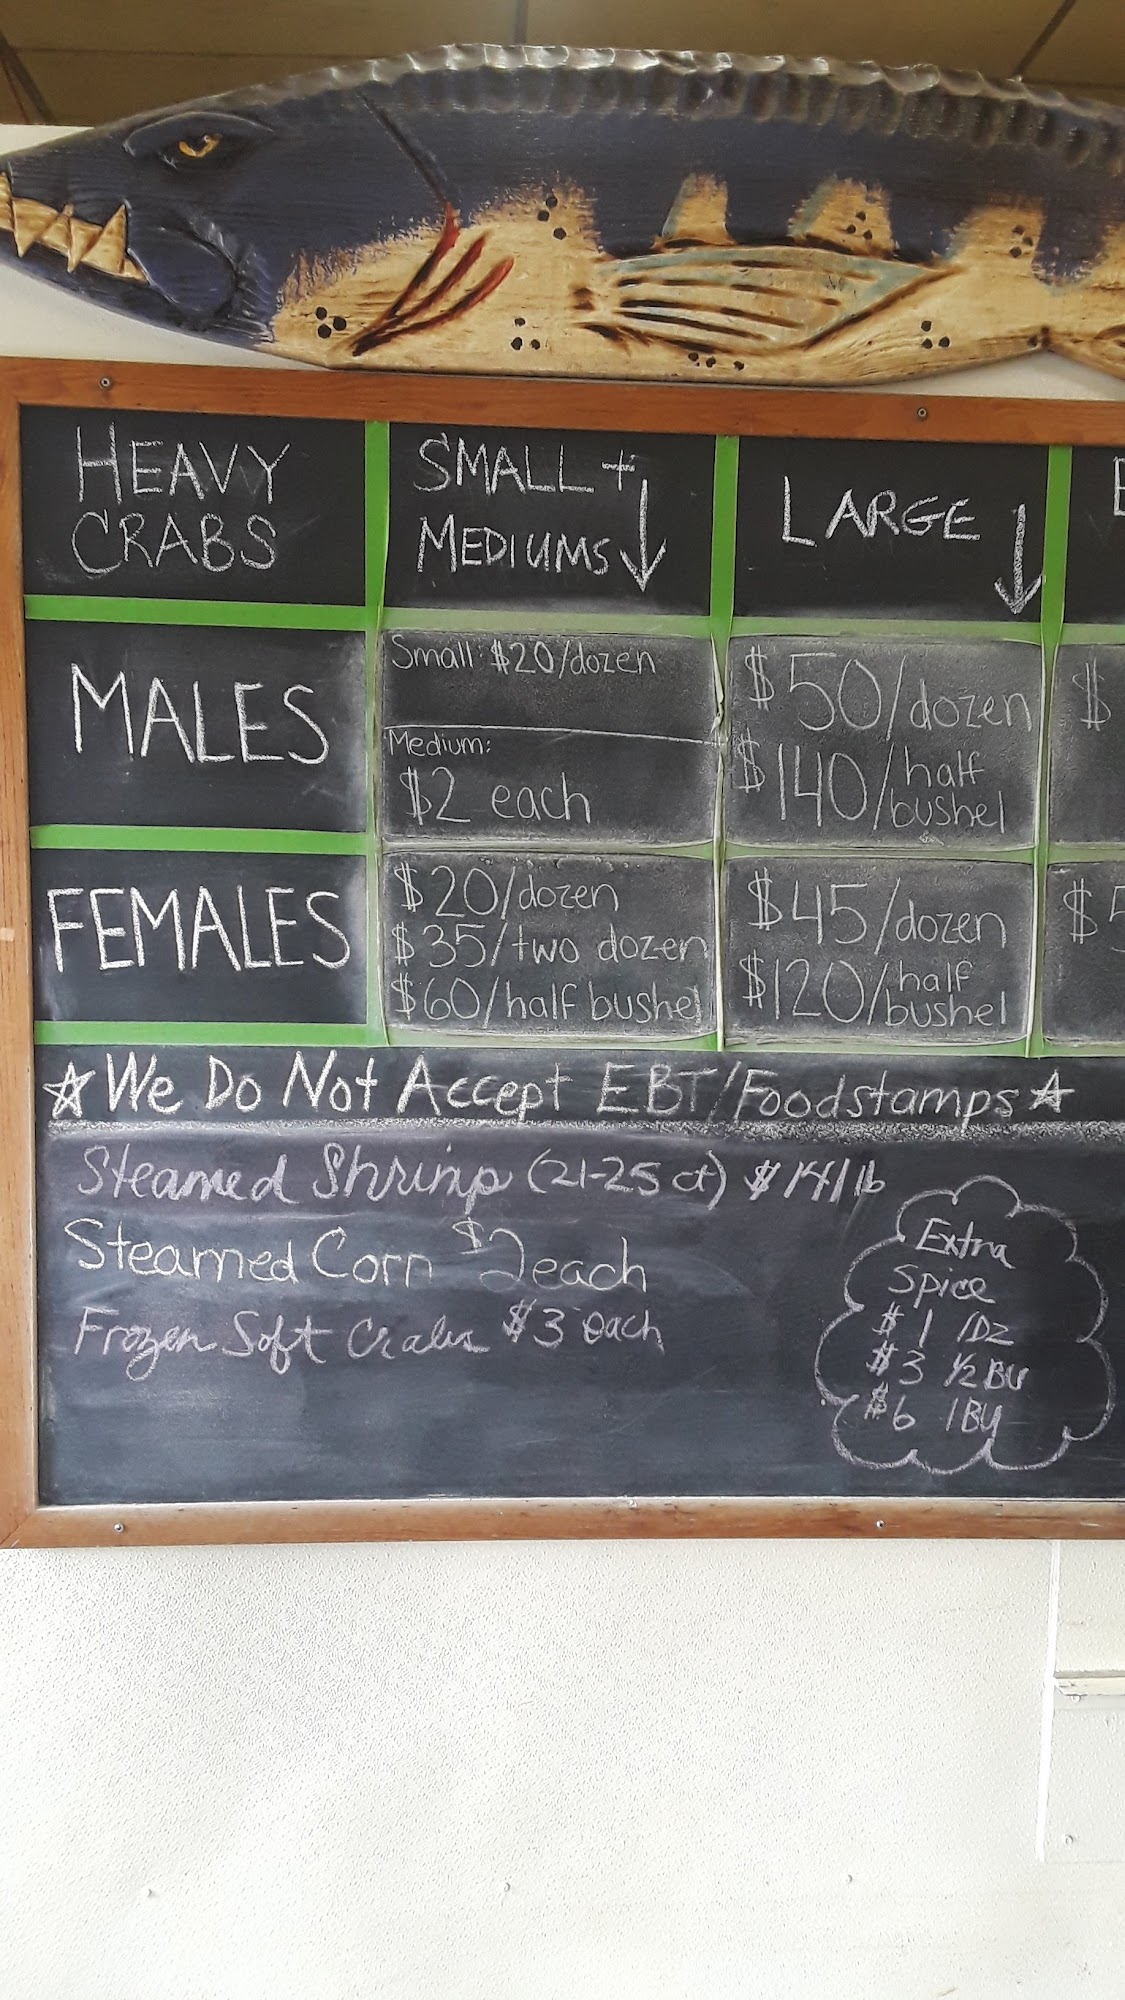 HEAVY
CRABS
SMALL +
MEDIUMS
LARGE
MALES
Small: $20/dozen
Medium:
$2 each
$50/dozen
$140/half
bushel
$
FEMALES
$20/dozen
$35/two dozen
$60/half bushel
$45/dozen
$120/half
bushel
$5
☆We Do Not Accept EBT/Foodstamps☆
Steamed Shrimp (21-25 ct) $14/lb
Steamed Corn $2 each
Frozen Soft Crabs $3 each
Extra
Spice
$1 /DZ
$3 1/2 BU
$6 1BU